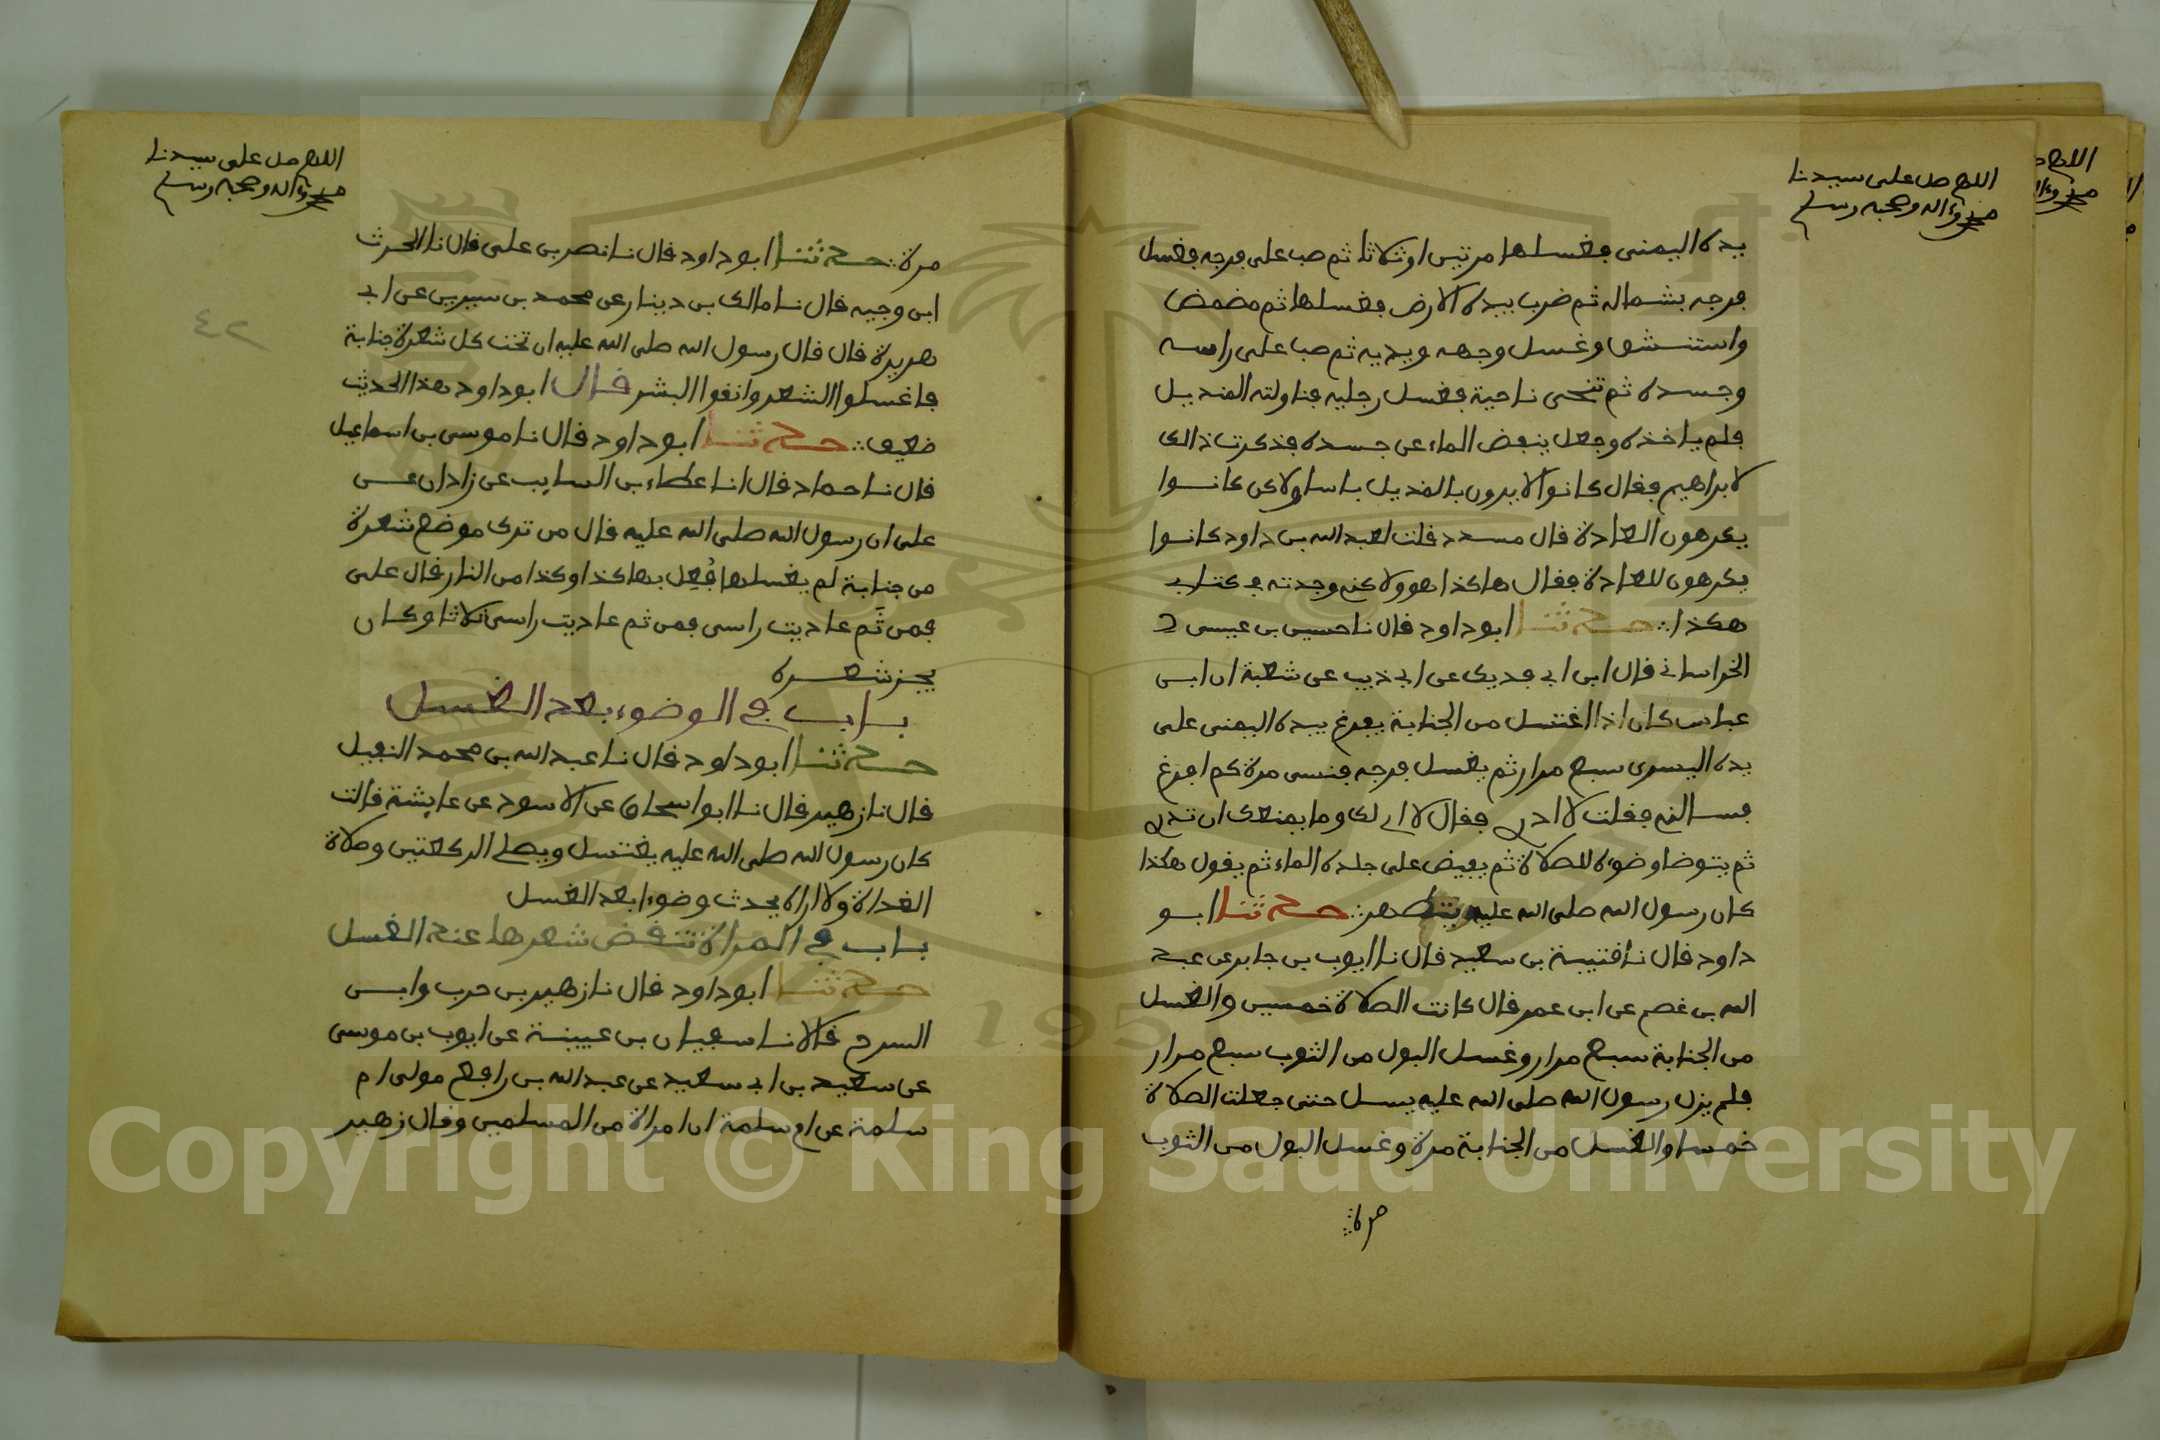 اللهم صل على سيدنا
محمد وءاله وصحبه وسلم
يده اليمنى فغسلها مرتين او ثلاثا ثم صب على فرجه فغسل
فرجه بشماله ثم ضرب بيده الارض فغسلها ثم مضمض
واستنشق وغسل وجهه ويديه ثم صب على راسه
وجسده ثم تنحى ناحية فغسل رجليه فناولته المنديل
فلم ياخذه وجعل ينفض الماء عن جسده فذكرت ذالك
لابراهيم فقال كانوا لا يرون بالمنديل باسا ولاكن كانوا
يكرهون العادة قال مسدد قلت لعبد الله بن داود كانوا
يكرهون للعادة فقال هاكذا هو ولاكنه وجدته في كتاب
هكذا حدثنا ابو داود قال نا حسين بن عيسى
الخراساني قال ابن ابي فديك عن ابي ذيب عن شعبة ان ابن
عباس كان اذا اغتسل من الجنابة يفرغ بيده اليمنى على
يده اليسرى سبع مرار ثم يغسل فرجه فنسى مرة كم افرغ
فسالني فقلت لا ادري فقال لا ام لك وما يمنعك ان تدري
ثم يتوضا وضوءه للصلاة ثم يفيض على جلده الماء ثم يقول هكذا
كان رسول الله صلى الله عليه يتطهر حدثنا ابو
داود قال نا قتيبة بن سعيد قال نا ايوب بن جابر عن عبد
الله بن عصم عن ابن عمر قال كانت الصلاة خمسين والغسل
من الجنابة سبع مرار وغسل البول من الثوب سبع مرار
فلم يزل رسول الله صلى الله عليه يسل حتى جعلت الصلاة
خمسا والغسل من الجنابة مرة وغسل البول من الثوب
مرة
اللهم صل على سيدنا
محمد وءاله وصحبه وسلم
٤٢
مرة حدثنا ابو داود قال نا نصر بن على قال نا الحرث
ابن وجيه قال نا مالك بن دينار عن محمد بن سيرين عن ابي
هريرة قال قال رسول الله صلى الله عليه ان تحت كل شعرة جنابة
فاغسلوا الشعر وانقوا البشر قال ابو داود هذا الحديث
ضعيف حدثنا ابو داود قال نا موسى بن اسماعيل
قال نا حماد قال انا عطاء بن السايب عن زاذان عن
على ان رسول الله صلى الله عليه قال من ترك موضع شعرة
من جنابة لم يغسلها فُعِل بها كذا وكذا من النار قال على
فمن ثَم عاديت راسى فمن ثم عاديت راسى ثلاثا وكان
يجز شعره
باب في الوضوء بعد الغسل
حدثنا ابو داود قال نا عبد الله بن محمد النفيل
قال نا زهير قال نا ابو اسحاق عن الاسود عن عايشة قالت
كان رسول الله صلى الله عليه يغتسل ويصلي الركعتين وصلاة
الغداة ولا اراه يحدث وضوءا بعد الغسل
باب في المراة تنقض شعرها عند الغسل
حدثنا ابو داود قال نا زهير بن حرب وابن
السرح قالا نا سفيان بن عيينة عن ايوب بن موسى
عن سعيد بن ابي سعيد عن عبد الله بن رافع مولى ام
سلمة عن ام سلمة ان امراة من المسلمين وقال زهير
Copyright © King Saud University
1957